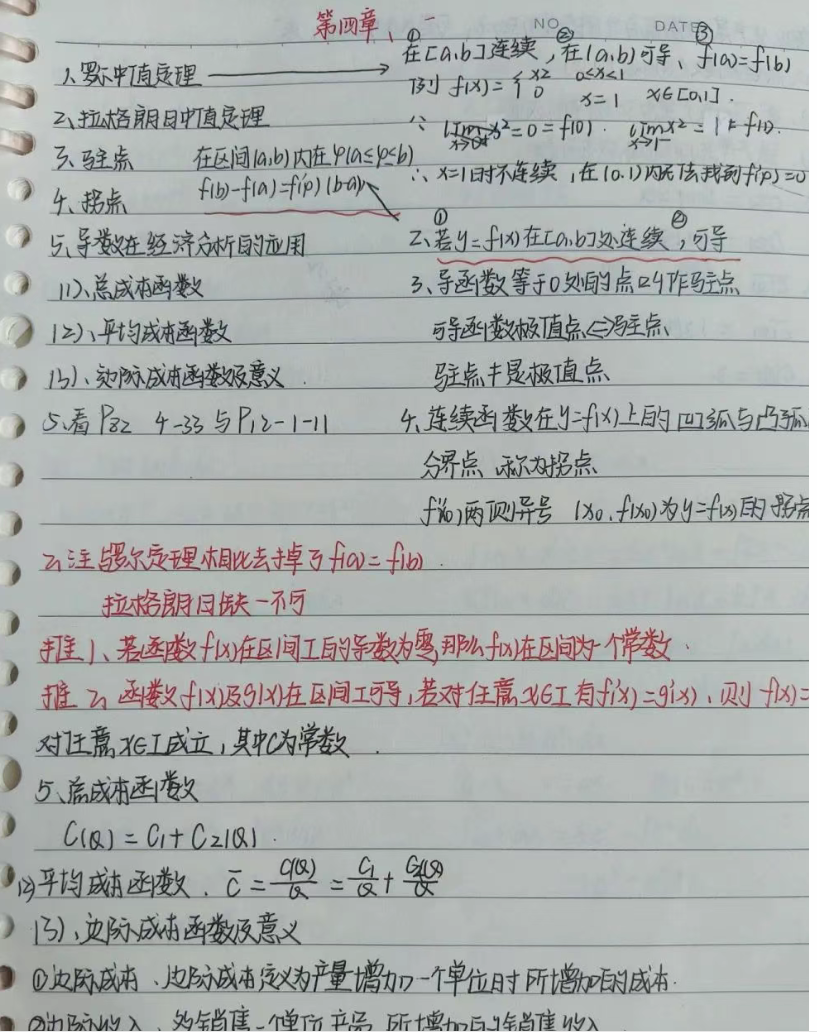 第四章、
NO.
DATE
① ② ③
1、罗尔中值定理 → 在[a,b]连续,在(a,b)可导、f(a)=f(b)
例 f(x)={x² 0<x<1
0 x=1 x∈[0,1].
2、拉格朗日中值定理
∵ lim x→0+ x²=0=f(0). lim x→1- x²=1≠f(1).
3、驻点 在区间(a,b)内在φ(a≤φ≤b)
∴ x=1时不连续,在(0,1)内无法找到f'(φ)=0
4、拐点 f(b)-f(a)=f'(φ)(b-a)
① ②
5、导数在经济分析的应用 2、若y=f(x)在[a,b]处连续,可导
(1)、总成本函数 3、导函数等于0处的点叫作驻点
(2)、平均成本函数 可导函数极值点⇔驻点、
(3)、边际成本函数及意义. 驻点≠是极值点
5、看P82 4-33与P12-1-11 4、连续函数在y=f(x)上的凹弧与凸弧
分界点 称为拐点
f''(x0)两侧异号 (x0,f(x0)为y=f(x)的拐点
2、注与罗尔定理相比去掉了f(a)=f(b).
拉格朗日缺一不可
推1、若函数f(x)在区间I的导数为零,那么f(x)在区间为一个常数.
推2、函数f(x)及g(x)在区间I可导,若对任意x∈I有f'(x)=g'(x),则f(x)=
对任意x∈I成立,其中C为常数.
5、总成本函数
C(Q)=C1+C2(Q).
(2)平均成本函数. C̄=C(Q)/Q=C1/Q+C2(Q)/Q
(3)、边际成本函数及意义
①边际成本、边际成本定义为产量增加一个单位时所增加的成本.
②边际收入、多销售一单位产品 所增加的销售收入